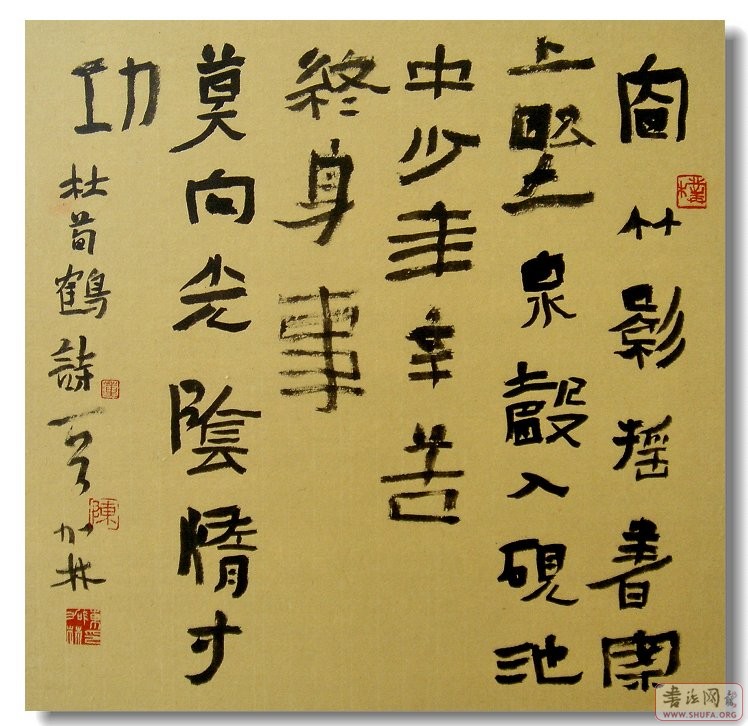 窗竹影摇書案
上野泉聲入硯池
中少年辛苦
終身事
莫向光陰惰寸
功
杜荀鶴詩一首 加林
陳
書法网
WWW.SHUFA.ORG